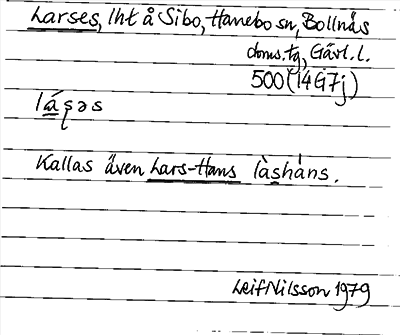 Larses, lht å Sibo, Hanebo sn, Bollnäs
doms.tg, Gävl.l.
500 (14G7j)
Kallas även Lars-Hans làshàns.
Leif Nilsson 1979